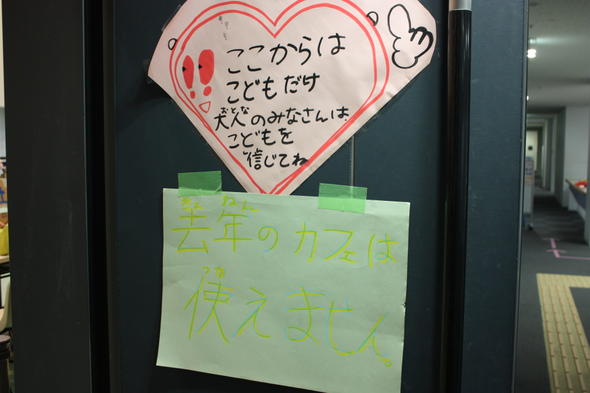 ここからは
こどもだけ
大人のみなさんは、
こどもを
信じてね
去年のカフェは
使えません。